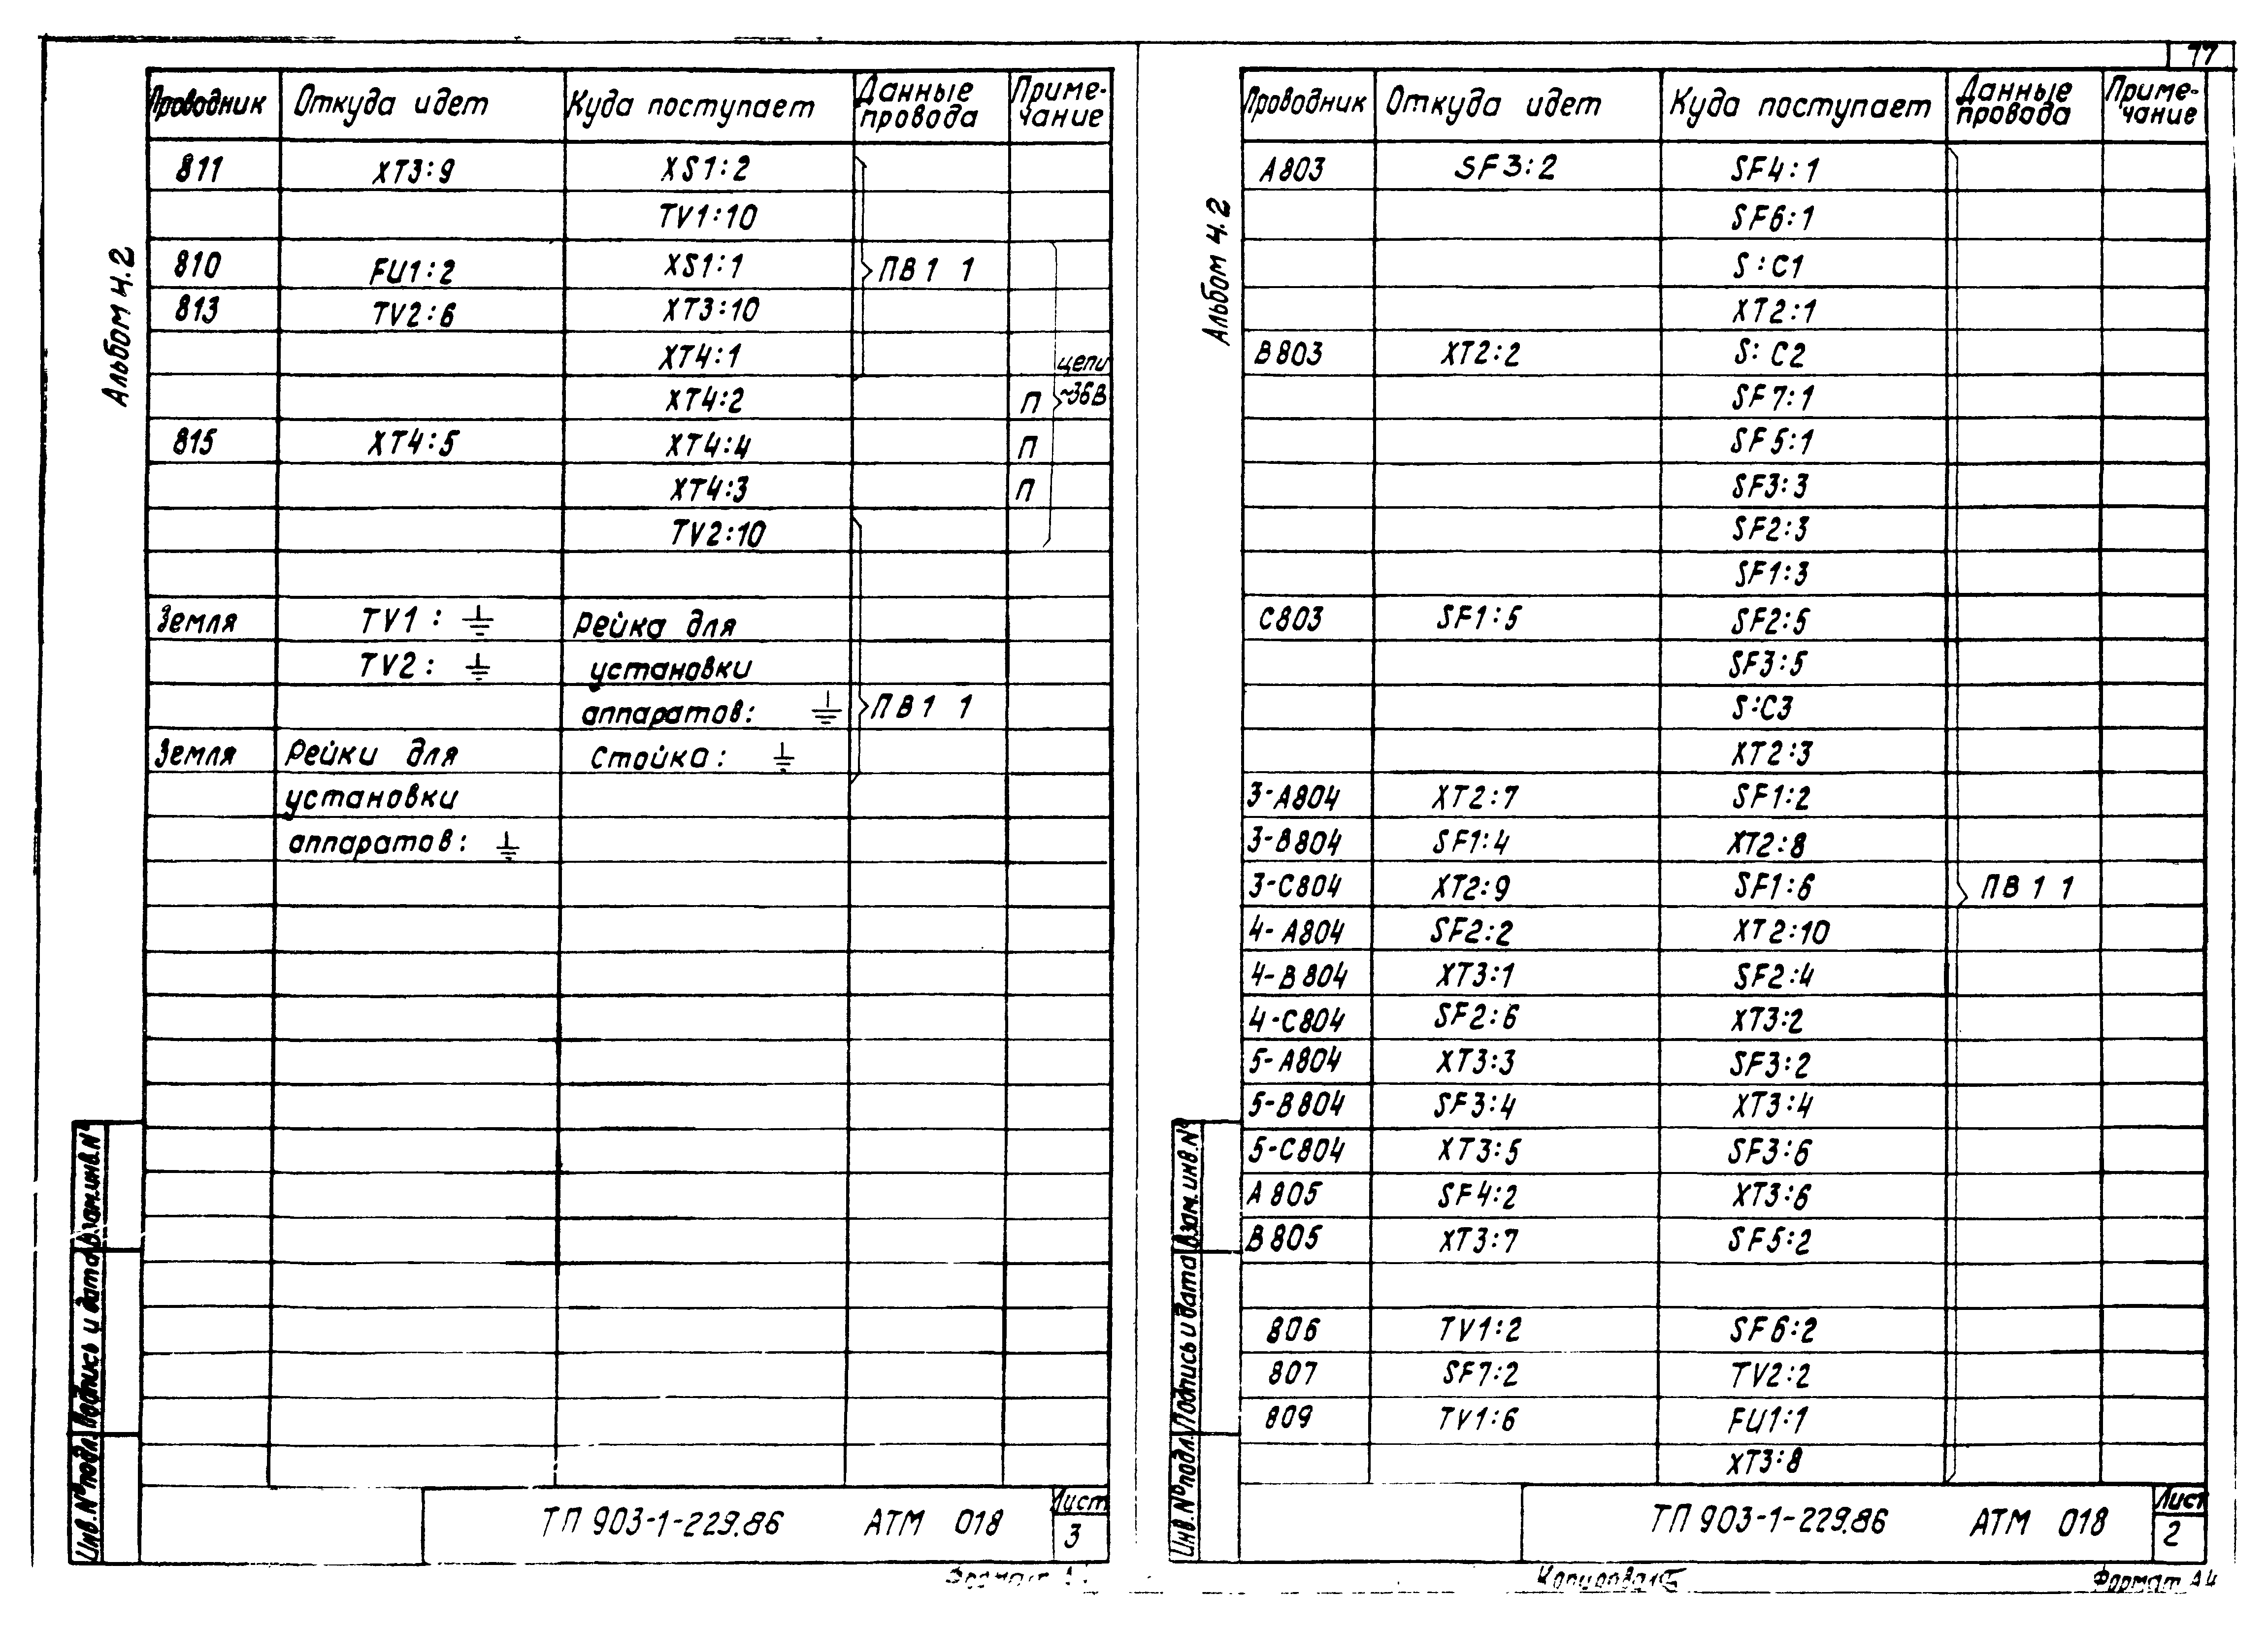 77
Альбом 4.2
Проводник Откуда идет Куда поступает Данные провода Приме-чание
811 XT3:9 XS1:2
TV1:10
810 FU1:2 XS1:1 ПВ1 1
813 TV2:6 XT3:10
XT4:1 цепи
XT4:2 П ~36В
815 XT4:5 XT4:4 П
XT4:3 П
TV2:10
Земля TV1: ⏚ Рейка для
TV2: ⏚ установки
аппаратов: ⏚ ПВ1 1
Земля Рейки для Стойка: ⏚
установки
аппаратов: ⏚
Взам.инв.№
Подпись и дата
Инв.№подл.
ТП 903-1-229.86 АТМ 018 Лист
3
Формат А
Альбом 4.2
Проводник Откуда идет Куда поступает Данные провада Приме-чание
А803 SF3:2 SF4:1
SF6:1
S:C1
XT2:1
В803 XT2:2 S:C2
SF7:1
SF5:1
SF3:3
SF2:3
SF1:3
С803 SF1:5 SF2:5
SF3:5
S:C3
XT2:3
3-А804 XT2:7 SF1:2
3-В804 SF1:4 XT2:8
3-С804 XT2:9 SF1:6 ПВ1 1
4-А804 SF2:2 XT2:10
4-В804 XT3:1 SF2:4
4-С804 SF2:6 XT3:2
5-А804 XT3:3 SF3:2
5-В804 SF3:4 XT3:4
5-С804 XT3:5 SF3:6
А805 SF4:2 XT3:6
В805 XT3:7 SF5:2
806 TV1:2 SF6:2
807 SF7:2 TV2:2
809 TV1:6 FU1:1
XT3:8
Взам.инв.№
Подпись и дата
Инв.№подл.
ТП 903-1-229.86 АТМ 018 Лист
2
Копировал Формат А4